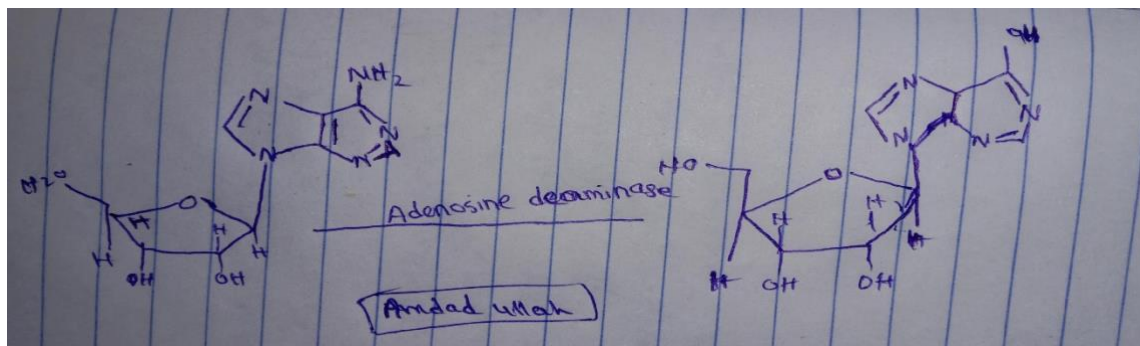 NH₂
N
N
N
N
H₂O
O
H
H
H
H
OH
OH
Adenosine deaminase
Amdad ullah
OH
N
N
N
N
HO
O
H
H
H
H
OH
OH